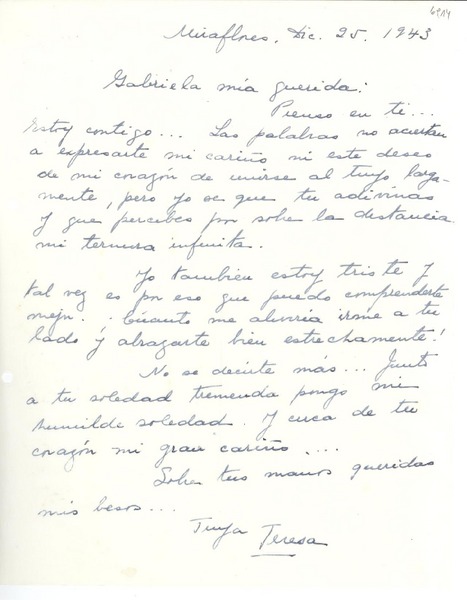 6914
Miraflores, Dic. 25. 1943
Gabriela mía querida:
Pienso en ti...
Estoy contigo... Las palabras no aciertan
a expresarte mi cariño ni este deseo
de mi corazón de unirse al tuyo larga-
mente, pero yo se que tu adivinas
y que percibes por sobre la distancia
mi ternura infinita..
Yo también estoy triste y
tal vez es por eso que puedo comprenderte
mejor. Cuánto me aliviría irme a tu
lado y abrazarte bien estrechamente!
No se decirte más... Junto
a tu soledad tremenda pongo mi
humilde soledad. Y cerca de tu
corazón mi gran cariño....
Sobre tus manos queridas
mis besos...
Tuya Teresa